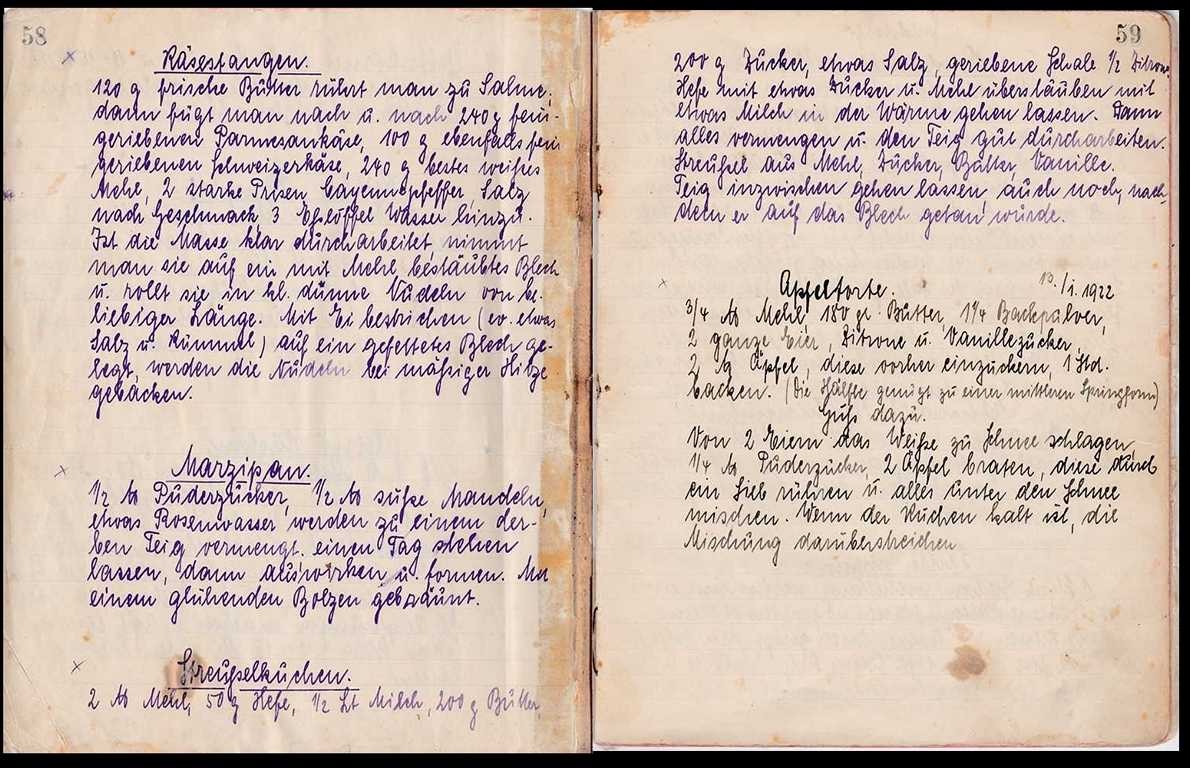 58
Käsestangen.
120 g frische Butter rührt man zu Sahne,
dann fügt man nach u. nach 240 g fein
geriebenen Parmesankäse, 100 g ebenfalls fein
geriebenen Schweizerkäse, 240 g bestes weißes
Mehl, 2 starke Prisen Cayennepfeffer, Salz
nach Geschmack 3 Eßlöffel Wasser hinzu.
Ist die Masse klar durcharbeitet, nimmt
man sie auf ein mit Mehl bestäubtes Blech
u. rollt sie in kl. dünne Nudeln von be-
liebiger Länge. Mit Ei bestrichen (ev. etwas
Salz u. Kümmel) auf ein gefettetes Blech ge-
legt, werden die Nudeln bei mäßiger Hitze
gebacken.
Marzipan.
1/2 ℔ Puderzucker, 1/2 ℔ süße Mandeln,
etwas Rosenwasser, werden zu einem der-
ben Teig vermengt. einen Tag stehen
lassen, dann auswirken u. formen. Mit
einem glühenden Bolzen gebräunt.
Streußelkuchen.
2 ℔ Mehl, 50 g Hefe, 1/2 Lt Milch, 200 g Butter,
59
200 g Zucker, etwas Salz, geriebene Schale 1/2 Zitrone
Hefe mit etwas Zucker u. Mehl überstäuben mit
etwas Milch in der Wärme gehen lassen. Dann
alles vermengen u. den Teig gut durcharbeiten.
Streußel aus Mehl, Zucker, Butter, Vanille.
Teig inzwischen gehen lassen, auch noch, nach-
dem er auf das Blech getan wurde.
Apfeltorte. 13./1.1922
3/4 ℔ Mehl, 180 gr. Butter, 1 1/4 Backpulver,
2 ganze Eier, Zitrone u. Vanillezucker,
2 Äpfel, diese vorher einzuckern, 1 Std.
backen. (Die Hälfte genügt zu einer mittleren Springform)
Guß dazu.
Von 2 Eiern das Weiße zu Schnee schlagen,
1/4 ℔ Puderzucker, 2 Äpfel braten, diese durch
ein Sieb rühren u. alles unter den Schnee
mischen. Wenn der Kuchen kalt ist, die
Mischung darüberstreichen